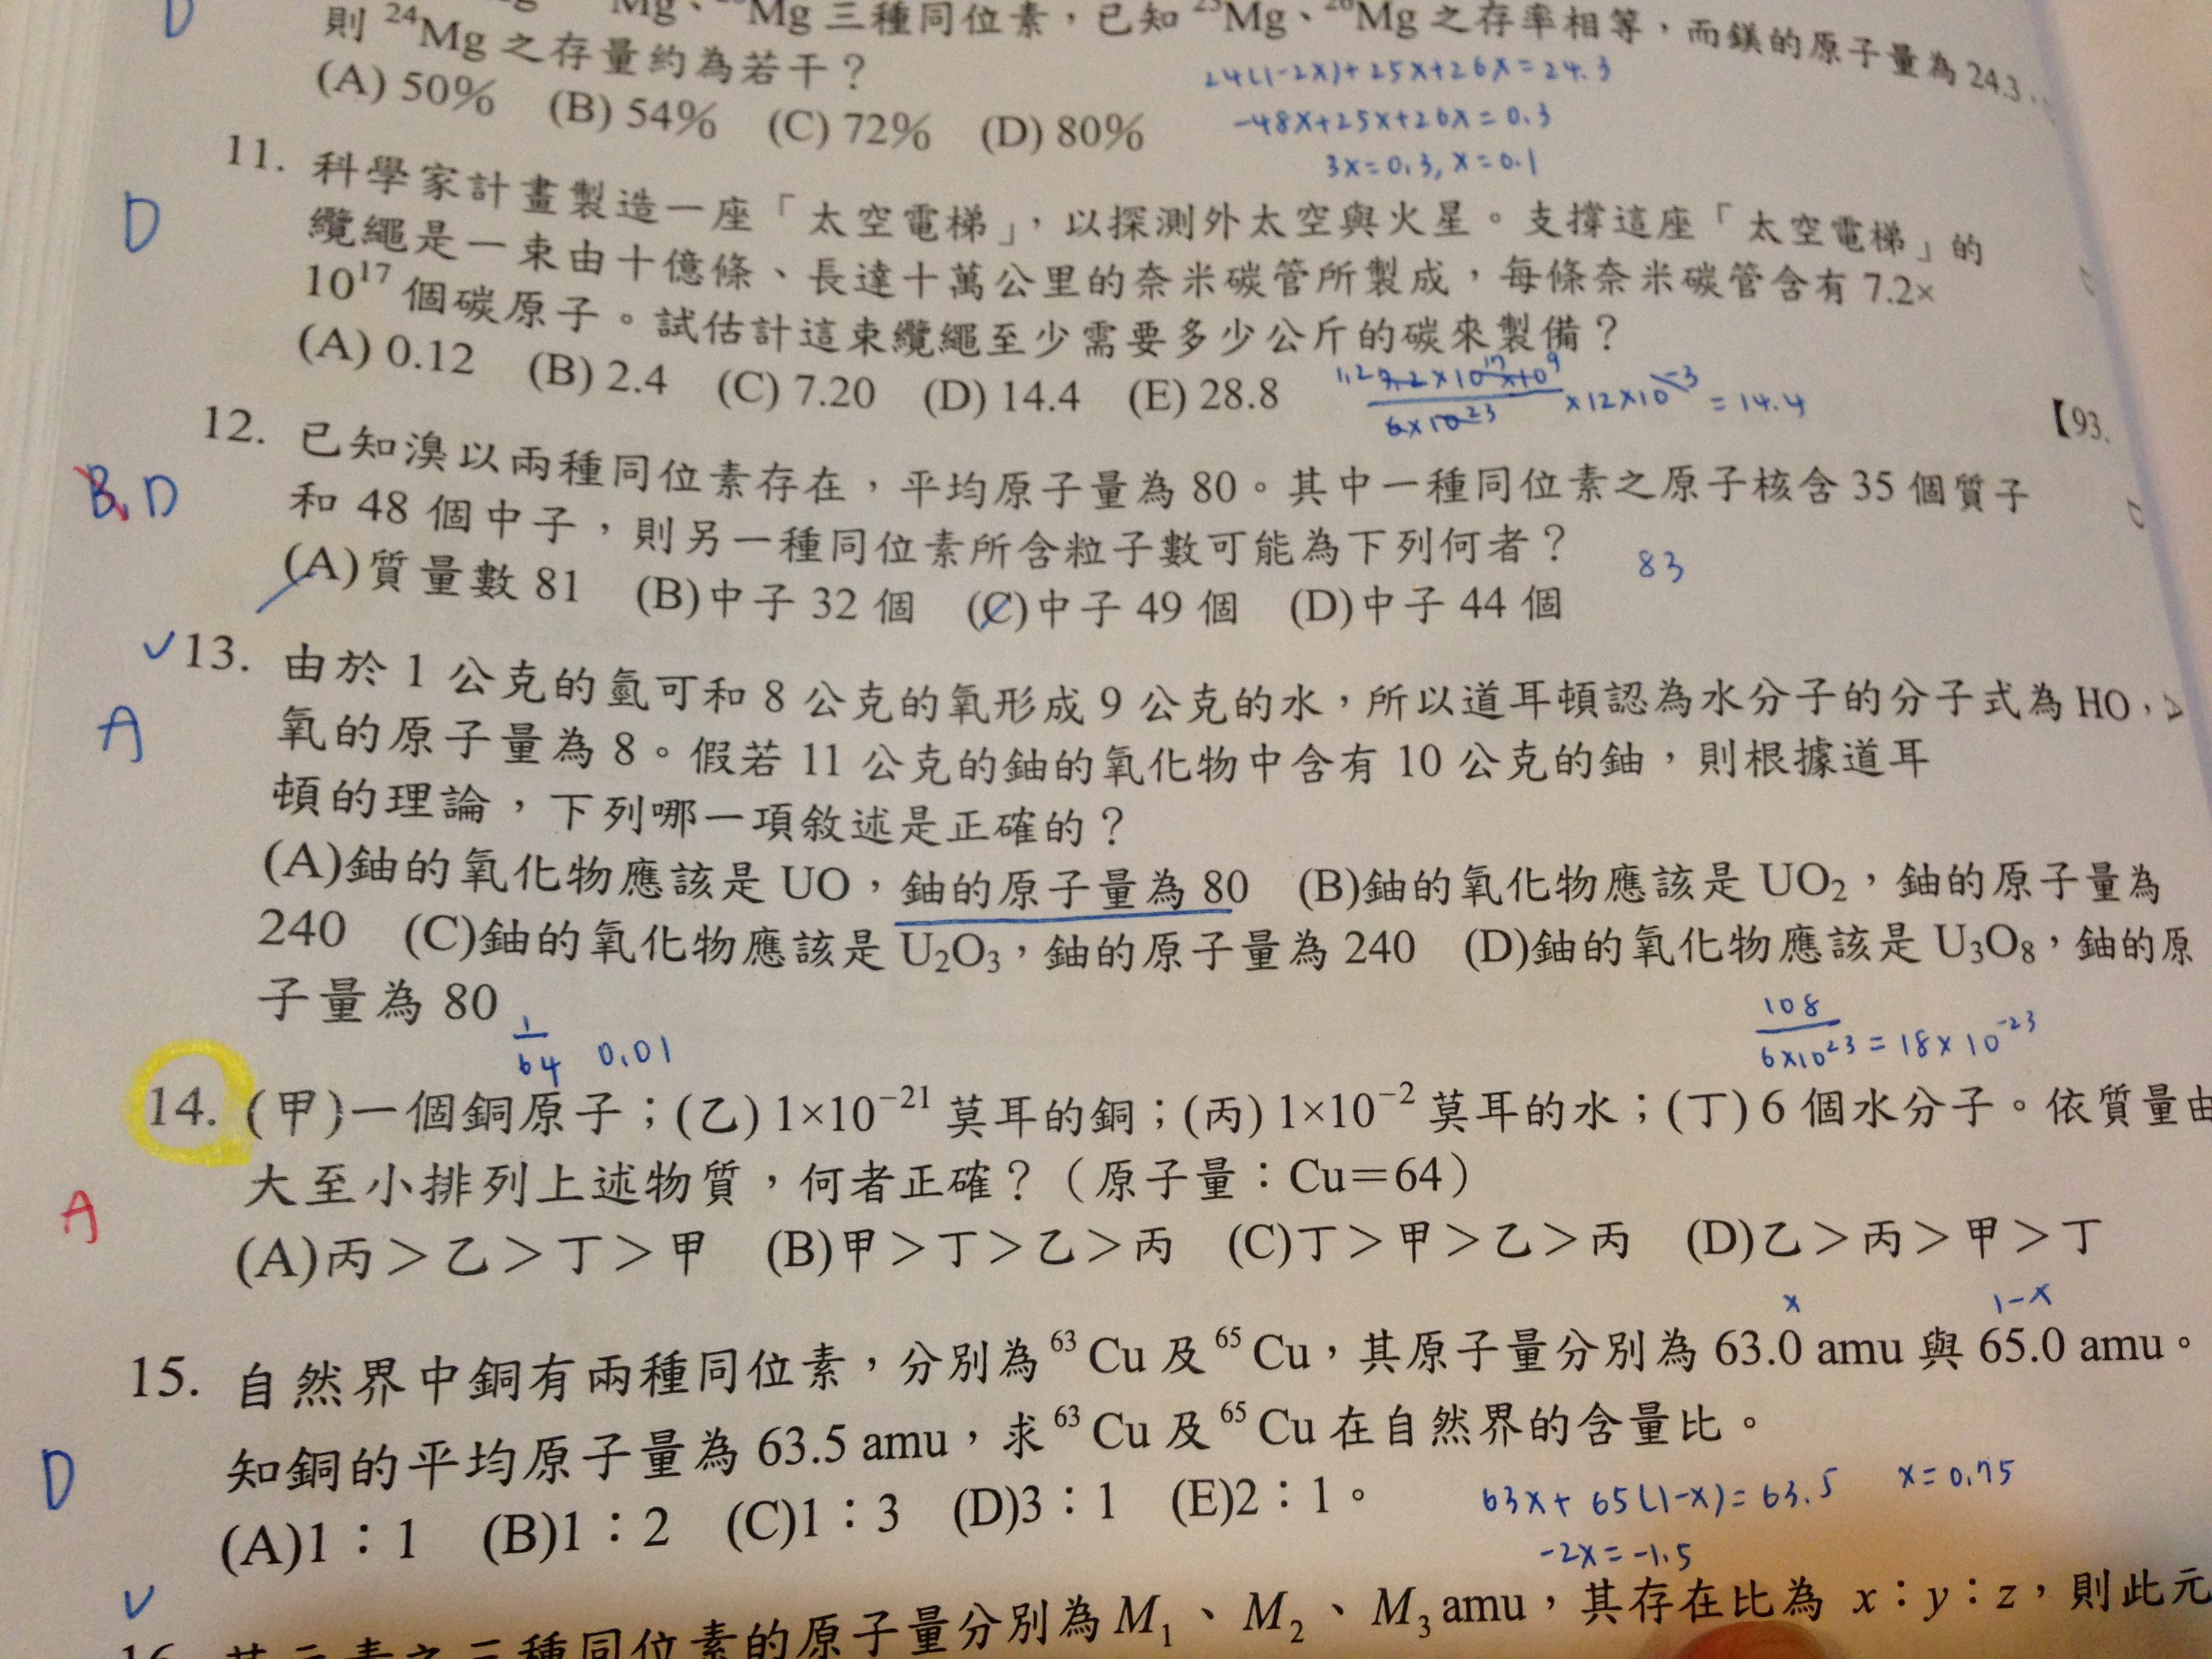 D
Mg、Mg 三種同位素，已知 ²⁵Mg、²⁶Mg 之存率相等，而鎂的原子量為 24.3
則 ²⁴Mg 之存量約為若干？
24(1-2x)+25x+26x=24.3
(A) 50% (B) 54% (C) 72% (D) 80%
-48x+25x+26x=0.3
3x=0.3, x=0.1
D
11. 科學家計畫製造一座「太空電梯」，以探測外太空與火星。支撐這座「太空電梯」的
纜繩是一束由十億條、長達十萬公里的奈米碳管所製成，每條奈米碳管含有 7.2×
10¹⁷ 個碳原子。試估計這束纜繩至少需要多少公斤的碳來製備？
(A) 0.12 (B) 2.4 (C) 7.20 (D) 14.4 (E) 28.8
1.2 7.2×10¹⁷×10⁹ / 6×10²³ ×12×10⁻³ = 14.4
【93.
B, D
12. 已知溴以兩種同位素存在，平均原子量為 80。其中一種同位素之原子核含 35 個質子
和 48 個中子，則另一種同位素所含粒子數可能為下列何者？
83
(A)質量數 81 (B)中子 32 個 (C)中子 49 個 (D)中子 44 個
✓
A
13. 由於 1 公克的氫可和 8 公克的氧形成 9 公克的水，所以道耳頓認為水分子的分子式為 HO，
氧的原子量為 8。假若 11 公克的鈾的氧化物中含有 10 公克的鈾，則根據道耳
頓的理論，下列哪一項敘述是正確的？
(A)鈾的氧化物應該是 UO，鈾的原子量為 80 (B)鈾的氧化物應該是 UO₂，鈾的原子量為
240 (C)鈾的氧化物應該是 U₂O₃，鈾的原子量為 240 (D)鈾的氧化物應該是 U₃O₈，鈾的原
子量為 80
1/64 0.01
108 / 6×10²³ = 18×10⁻²³
A
14. (甲)一個銅原子；(乙) 1×10⁻²¹ 莫耳的銅；(丙) 1×10⁻² 莫耳的水；(丁) 6 個水分子。依質量由
大至小排列上述物質，何者正確？（原子量：Cu＝64）
(A)丙＞乙＞丁＞甲 (B)甲＞丁＞乙＞丙 (C)丁＞甲＞乙＞丙 (D)乙＞丙＞甲＞丁
x 1-x
15. 自然界中銅有兩種同位素，分別為 ⁶³Cu 及 ⁶⁵Cu，其原子量分別為 63.0 amu 與 65.0 amu。
知銅的平均原子量為 63.5 amu，求 ⁶³Cu 及 ⁶⁵Cu 在自然界的含量比。
D
(A)1：1 (B)1：2 (C)1：3 (D)3：1 (E)2：1。
63x+65(1-x)=63.5 x=0.75
-2x=-1.5
✓
16. 某元素之三種同位素的原子量分別為 M₁、M₂、M₃ amu，其存在比為 x：y：z，則此元